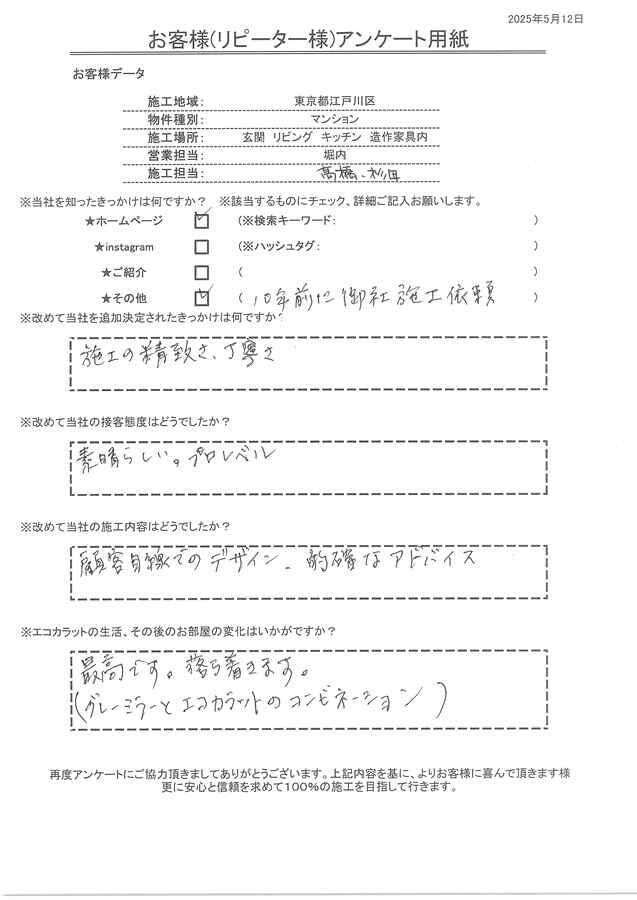 2025年5月12日
お客様(リピーター様)アンケート用紙
お客様データ
施工地域: 東京都江戸川区
物件種別: マンション
施工場所: 玄関 リビング キッチン 造作家具内
営業担当: 堀内
施工担当: 高橋、杉田
※当社を知ったきっかけは何ですか? ※該当するものにチェック、詳細ご記入お願いします。
★ホームページ ☑ (※検索キーワード: )
★instagram □ (※ハッシュタグ: )
★ご紹介 □ ( )
★その他 ☑ (10年前に御社施工依頼 )
※改めて当社を追加決定されたきっかけは何ですか?
施工の精致さ、丁寧さ
※改めて当社の接客態度はどうでしたか?
素晴らしい。プロレベル
※改めて当社の施工内容はどうでしたか?
顧客目線でのデザイン、的確なアドバイス
※エコカラットの生活、その後のお部屋の変化はいかがですか?
最高です。落ち着きます。
(グレーミラーとエコカラットのコンビネーション)
再度アンケートにご協力頂きましてありがとうございます。上記内容を基に、よりお客様に喜んで頂きます様
更に安心と信頼を求めて100%の施工を目指して行きます。